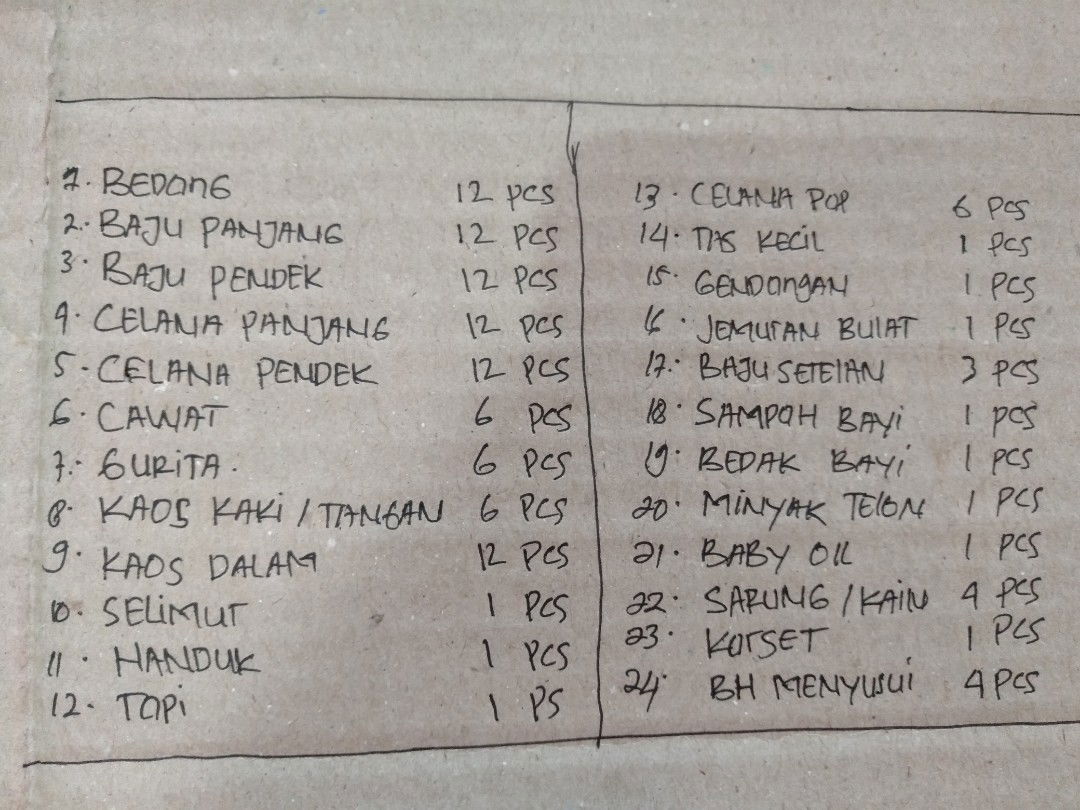 1. BEDONG 12 PCS
2. BAJU PANJANG 12 PCS
3. BAJU PENDEK 12 PCS
4. CELANA PANJANG 12 PCS
5. CELANA PENDEK 12 PCS
6. CAWAT 6 PCS
7. GURITA. 6 PCS
8. KAOS KAKI / TANGAN 6 PCS
9. KAOS DALAM 12 PCS
10. SELIMUT 1 PCS
11. HANDUK 1 PCS
12. TOPI 1 PS
13. CELANA POP 6 PCS
14. TAS KECIL 1 PCS
15. GENDONGAN 1 PCS
16. JEMURAN BULAT 1 PCS
17. BAJU SETELAN 3 PCS
18. SAMPOH BAYI 1 PCS
19. BEDAK BAYI 1 PCS
20. MINYAK TELON 1 PCS
21. BABY OIL 1 PCS
22. SARUNG / KAIN 4 PCS
23. KORSET 1 PCS
24. BH MENYUSUI 4 PCS